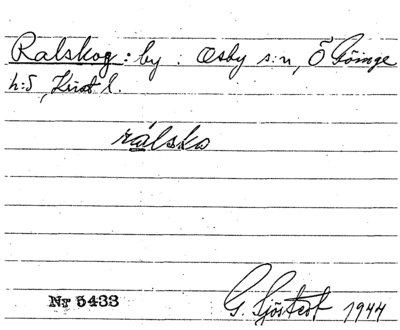 Ralskog : by : Osby s:n, Ö Göinge
h:d, Krist l.
rálsko
Nr 5433
G. Sjöstedt 1944